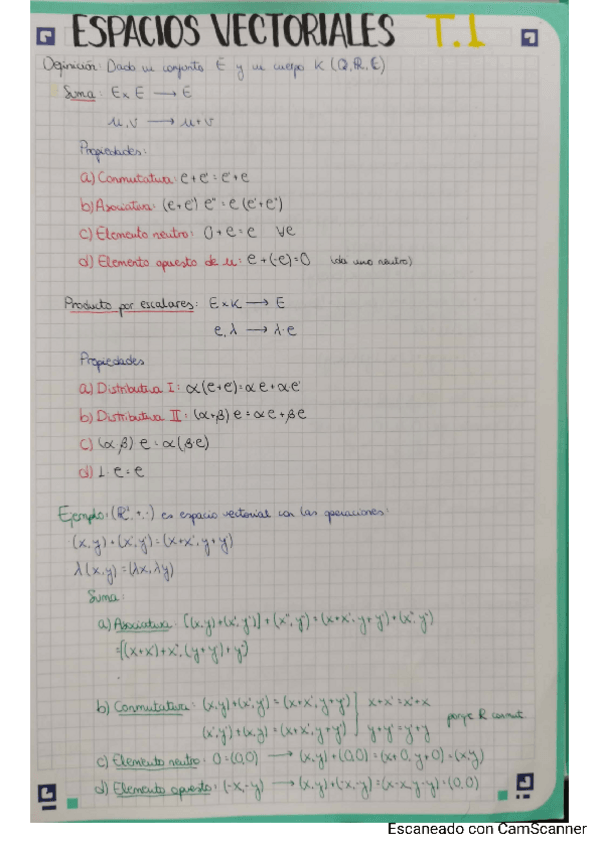 ESPACIOS VECTORIALES T.1
Definición: Dado un conjunto E y un cuerpo K (Q, R, C)
Suma: E x E → E
u, v → u + v
Propiedades:
a) Conmutativa: e + e' = e' + e
b) Asociativa: (e + e') e'' = e (e' + e'')
c) Elemento neutro: 0 + e = e ∀e
d) Elemento opuesto de u: e + (-e) = 0 (da uno neutro)
Producto por escalares: E x K → E
e, λ → λ · e
Propiedades
a) Distributiva I: α(e + e') = αe + αe'
b) Distributiva II: (α + β) e = αe + βe
c) (α · β) e = α(β · e)
d) 1 · e = e
Ejemplo: (R², +, ·) es espacio vectorial con las operaciones:
(x, y) + (x', y') = (x + x', y + y')
λ(x, y) = (λx, λy)
Suma:
a) Asociativa: [(x, y) + (x', y')] + (x'', y'') = (x + x', y + y') + (x'', y'')
= ((x + x') + x'', (y + y') + y'')
b) Conmutativa: (x, y) + (x', y') = (x + x', y + y') x + x' = x' + x
(x', y') + (x, y) = (x + x', y + y') y + y' = y' + y porque R conmut.
c) Elemento neutro: 0 = (0, 0) → (x, y) + (0, 0) = (x + 0, y + 0) = (x, y)
d) Elemento opuesto: (-x, -y) → (x, y) + (-x, -y) = (x - x, y - y) = (0, 0)
Escaneado con CamScanner